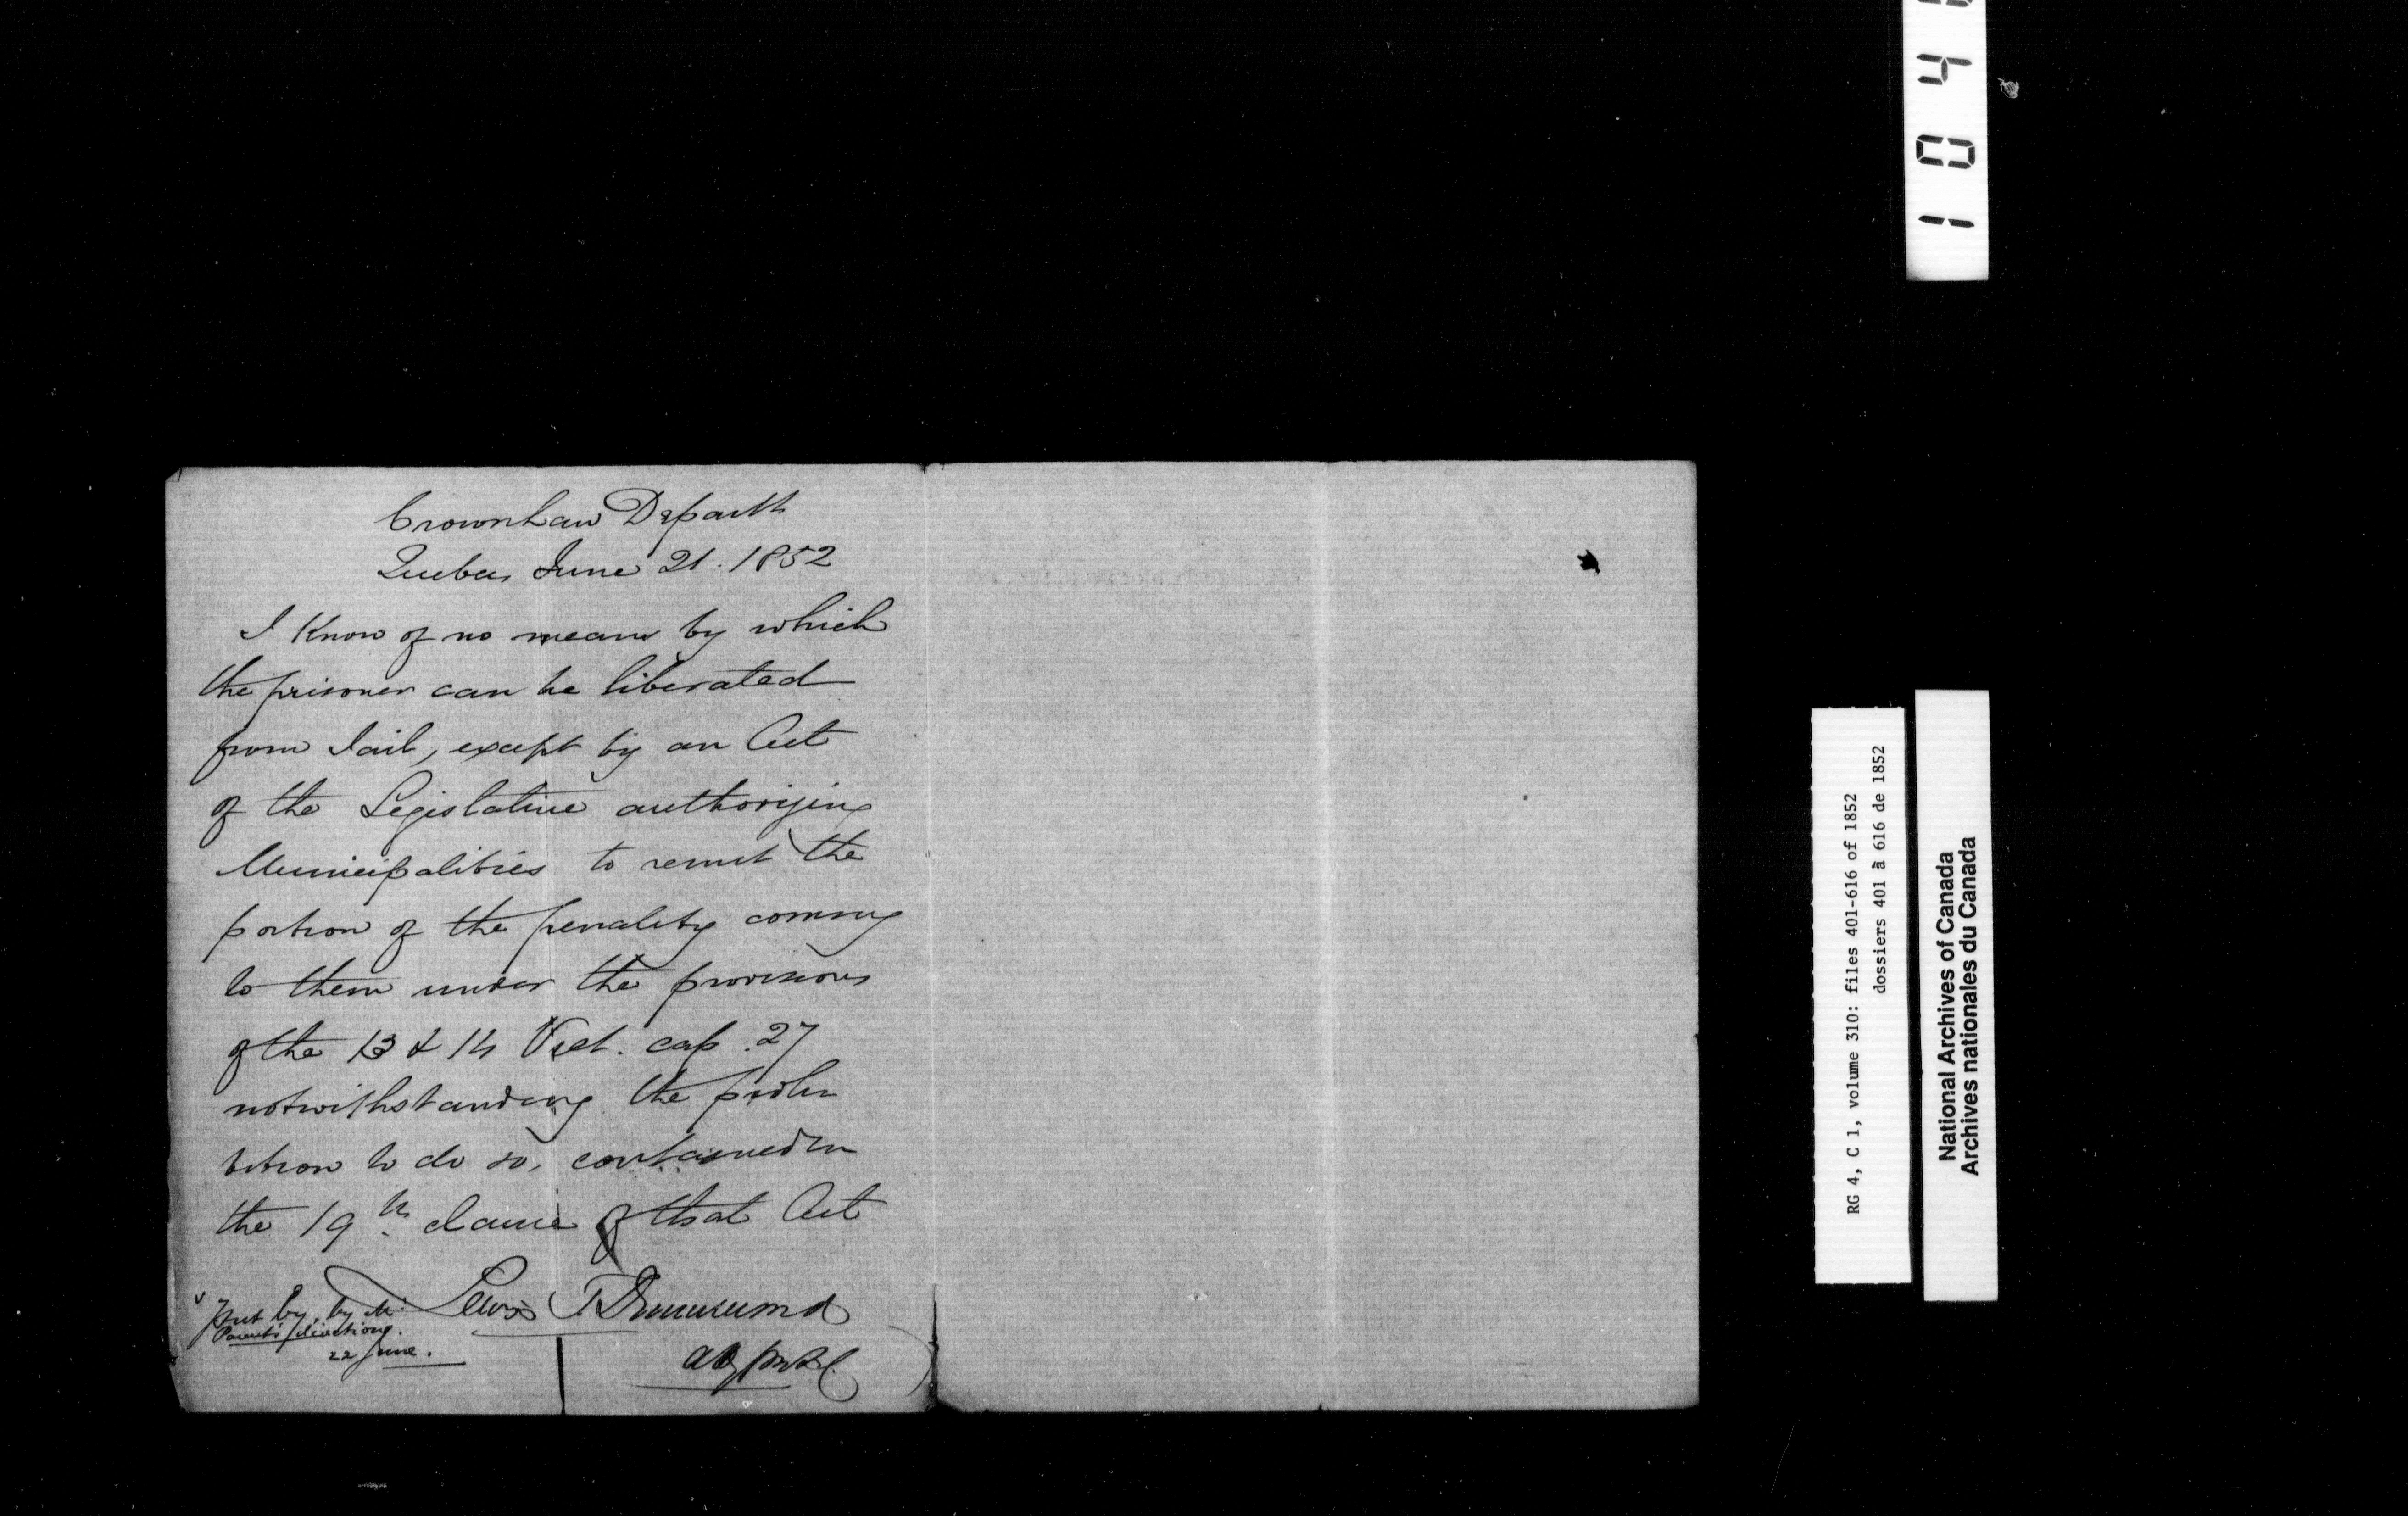 Crown Law Departt
Quebec June 21. 1852
I Know of no means by which
the prisoner can be liberated
from Jail, except by an Act
of the Legislature authorizing
Municipalities to remit the
portion of the penality coming
to them under the provisions
of the 13 & 14 Vict. cap. 27
notwithstanding the prohi
bition to do so, contained in
the 19th clause of that Act
Lewis T Drummond
Put by, by Mr
Parent's directions.
22 June.
104
RG 4, C 1, volume 310: files 401-616 of 1852
dossiers 401 à 616 de 1852
National Archives of Canada
Archives nationales du Canada